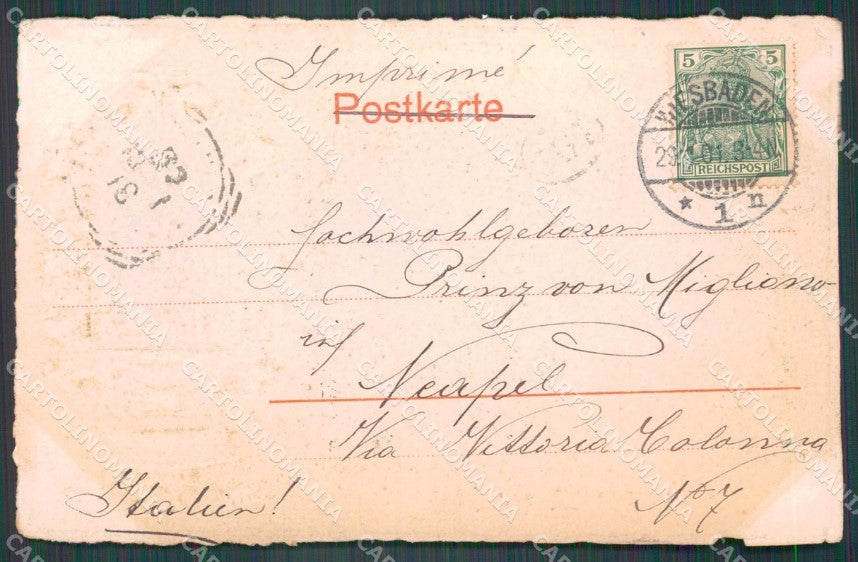 Imprimé
Postkarte
5 5
WIESBADEN
REICHSPOST
* 1 n
Hochwohlgeboren
Prinz von Migliano
in
Neapel
Via Vittoria Colonna
No 7
Italien!
CARTOLINOMANIA